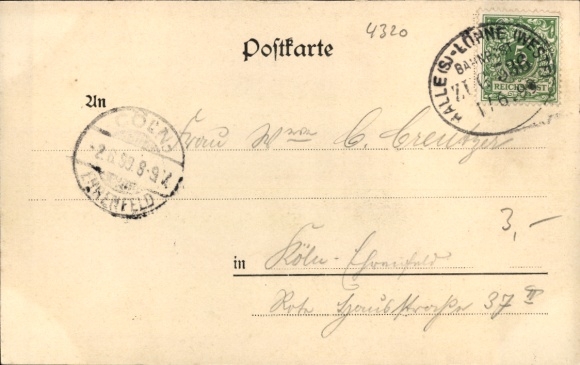 4320
Postkarte
HALLE(S)-LÖHNE (WESTF)
BAHNPOST
ZUG
5
REICHSPOST
An
CÖLN-
2.6.99.8-9V.
EHRENFELD
Frau Wwe C. Creutzer
3,-
in Köln-Ehrenfeld
Rote Hausstraße 37 II